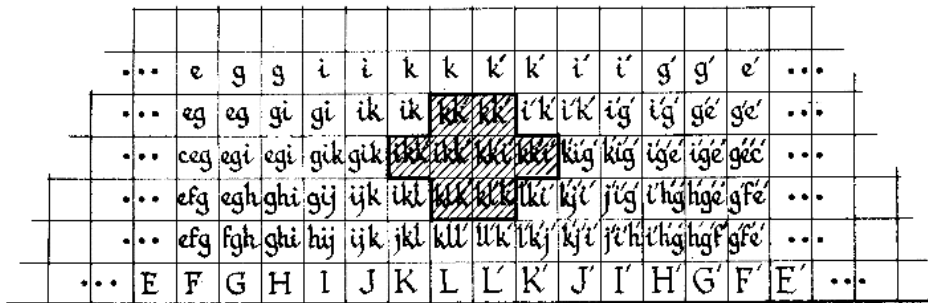 ... e g g i i k k k′ k′ i′ i′ g′ g′ e′ ...
... eg eg gi gi ik ik kk′ kk′ i′k′ i′k′ i′g′ i′g′ g′e′ g′e′ ...
... ceg egi egi gik gik ikk′ ikk′ kk′i′ kk′i′ k′i′g′ k′i′g′ i′g′e′ i′g′e′ g′e′c′ ...
... efg egh ghi gij ijk ikl klk′ kl′k′ l′k′i′ k′j′i′ j′i′g′ i′h′g′ h′g′e′ g′f′e′ ...
... efg fgh ghi hij ijk jkl kll′ ll′k′ l′k′j′ k′j′i′ j′i′h′ i′h′g′ h′g′f′ g′f′e′ ...
... E F G H I J K L L′ K′ J′ I′ H′ G′ F′ E′ ...